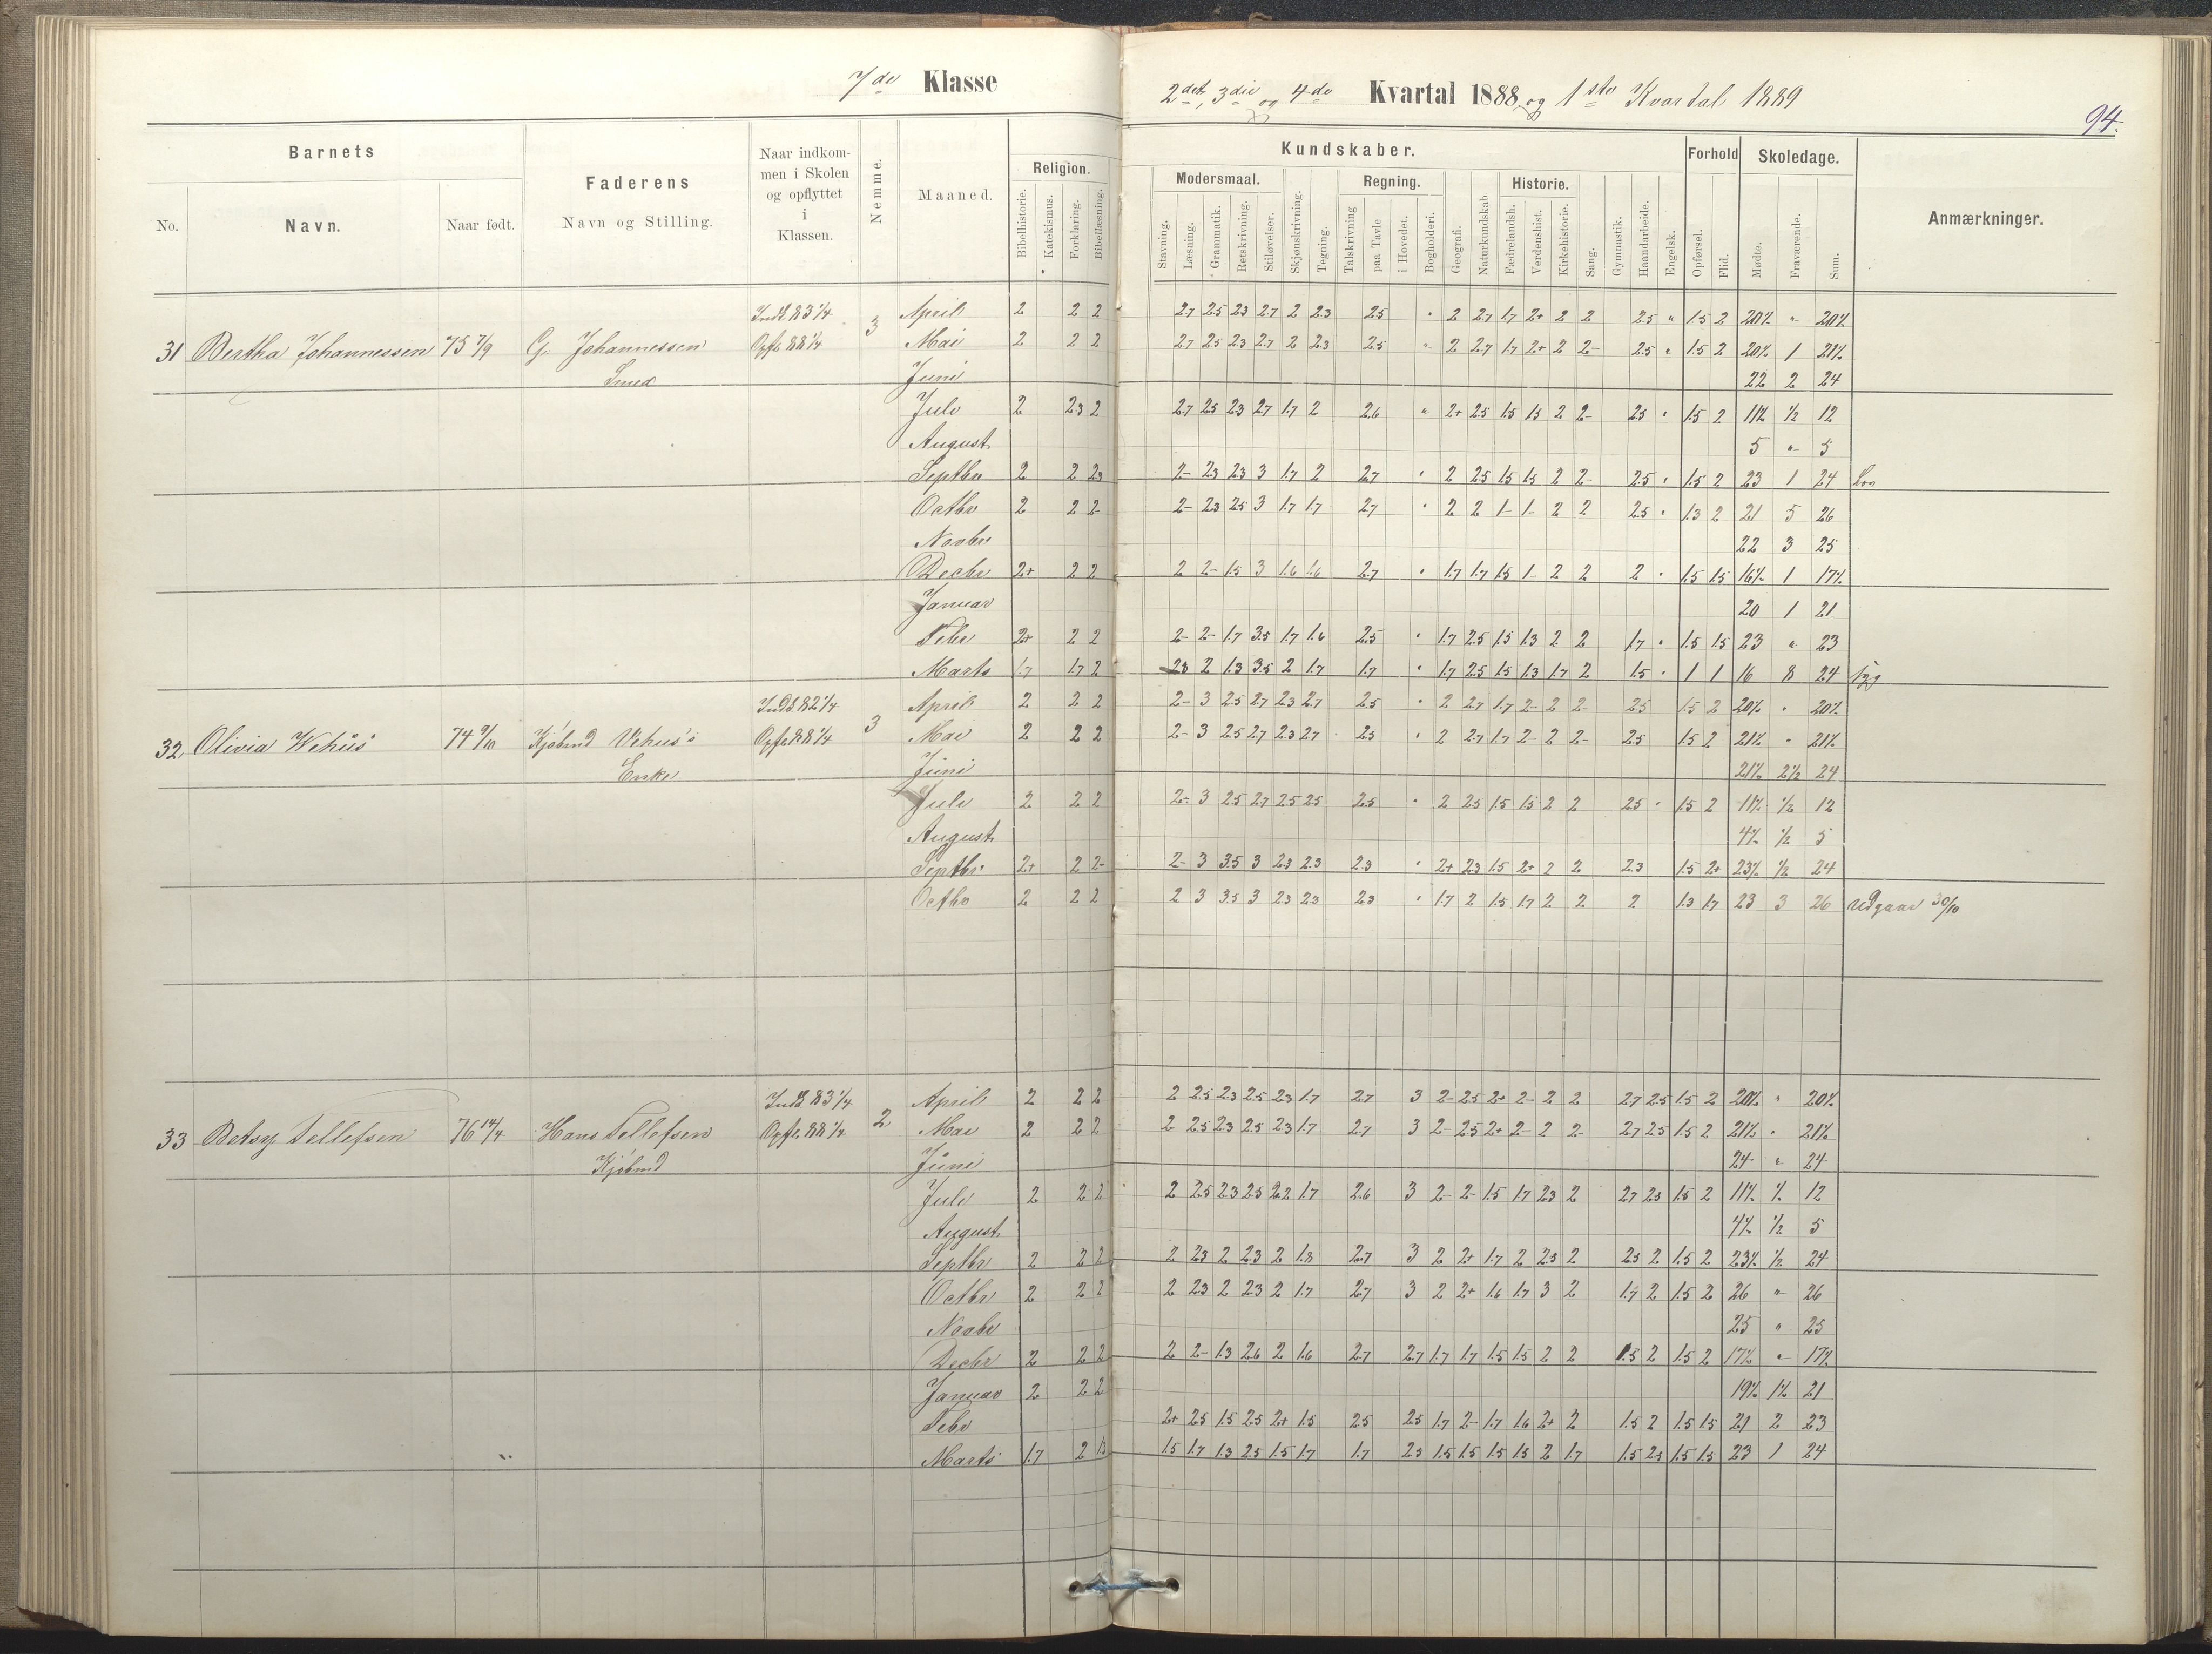 7de Klasse
2det, 3die og 4de Kvartal 1888 og 1ste Kvartal 1889
94.
Barnets
No.
Navn.
Naar født.
Faderens
Navn og Stilling.
Naar indkom-
men i Skolen
og opflyttet
i
Klassen.
Nemme.
Maaned.
Religion.
Bibelhistorie.
Katekismus.
Forklaring.
Bibellæsning.
Kundskaber.
Modersmaal.
Stavning.
Læsning.
Grammatik.
Retskrivning.
Stiløvelser.
Skjønskrivning.
Tegning.
Regning.
Talskrivning
paa Tavle
i Hovedet.
Bogholderi.
Geografi.
Naturkundskab
Historie.
Fædrelandsh.
Verdenshist.
Kirkehistorie.
Sang.
Gymnastik.
Haandarbeide.
Engelsk.
Forhold
Opførsel.
Flid.
Skoledage.
Mødte.
Fraværende.
Sum.
Anmærkninger.
31 Bertha Johannessen 75 7/9 G. Johannessen Smed Inds. 83 1/4 Opfl. 88 1/4 3
April 2 2 2 2.7 2.5 2.3 2.7 2 2.3 2.5 " 2 2.7 1.7 2+ 2 2 2.5 " 1.5 2 20½ " 20½
Mai 2 2 2 2.7 2.5 2.3 2.7 2 2.3 2.5 " 2 2.7 1.7 2+ 2 2- 2.5 " 1.5 2 20½ 1 21½
Juni 22 2 24
Juli 2 2.3 2 2.7 2.5 2.3 2.7 1.7 2 2.6 " 2+ 2.5 1.5 1.5 2 2- 2.5 " 1.5 2 11½ ½ 12
August 5 " 5
Septbr 2 2 2.3 2- 2.3 2.3 3 1.7 2 2.7 " 2 2.5 1.5 1.5 2 2- 2.5 " 1.5 2 23 1 24
Octbr 2 2 2- 2- 2.3 2.5 3 1.7 1.7 2.7 " 2 2 1- 1- 2 2 2.5 " 1.3 2 21 5 26
Novbr 22 3 25
Decbr 2+ 2 2 2 2- 1.5 3 1.6 1.6 2.7 " 1.7 1.7 1.5 1- 2 2 2 " 1.5 1.5 16½ 1 17½
Januar 20 1 21
Febr 2+ 2 2 2- 2- 1.7 3.5 1.7 1.6 2.5 " 1.7 2.5 1.5 1.3 2 2 1.7 " 1.5 1.5 23 " 23
Marts 1.7 1.7 2 2.3 2 1.3 3.5 2 1.7 1.7 " 1.7 2.5 1.5 1.3 1.7 2 1.5 " 1 1 16 8 24 syg
32 Olivia Wehus 74 9/10 Kjøbmd Vehus's Enke Inds. 82 1/4 Opfl. 88 1/4 3
April 2 2 2 2- 3 2.5 2.7 2.3 2.7 2.5 " 2 2.7 1.7 2- 2 2- 2.5 1.5 2 20½ " 20½
Mai 2 2 2 2- 3 2.5 2.7 2.3 2.7 2.5 " 2 2.7 1.7 2- 2 2- 2.5 1.5 2 21½ " 21½
Juni 21½ 2½ 24
Juli 2 2 2 2- 3 2.5 2.7 2.5 2.5 2.5 " 2 2.5 1.5 1.5 2 2 2.5 " 1.5 2 11½ ½ 12
August 4½ ½ 5
Septbr 2+ 2 2- 2- 3 3.5 3 2.3 2.3 2.3 " 2+ 2.3 1.5 2+ 2 2 2.3 1.5 2+ 23½ ½ 24
Octbr 2 2 2 2 3 3.5 3 2.3 2.3 2.3 " 1.7 2 1.5 1.7 2 2 2 1.3 1.7 23 3 26 udgaar 30/10
33 Betsy Tellefsen 76 14/4 Hans Tellefsen Kjøbmd Inds. 83 1/4 Opfl. 88 1/4 2
April 2 2 2 2 2.5 2.3 2.5 2.3 1.7 2.7 3 2- 2.5 2+ 2- 2 2 2.7 2.5 1.5 2 20½ " 20½
Mai 2 2 2 2 2.5 2.3 2.5 2.3 1.7 2.7 3 2- 2.5 2+ 2- 2 2- 2.7 2.5 1.5 2 21½ " 21½
Juni 24 " 24
Juli 2 2 2 2 2.5 2.3 2.5 2.2 1.7 2.6 3 2- 2- 1.5 1.7 2.3 2 2.7 2.3 1.5 2 11½ ½ 12
August 4½ ½ 5
Septbr 2 2 2 2 2.3 2 2.3 2 1.8 2.7 3 2 2+ 1.7 2 2.3 2 2.3 2 1.5 2 23½ ½ 24
Octbr 2 2 2 2 2.3 2 2.3 2 1.7 2.7 3 2 2+ 1.6 1.7 3 2 1.7 2 1.5 2 26 " 26
Novbr 25 " 25
Decbr 2 2 2 2 2- 1.3 2.6 2 1.6 2.7 2.7 1.7 1.7 1.5 1.5 2 2 1.5 2 1.5 2 17½ " 17½
Januar 2 2 2 19½ 1½ 21
Febr 2+ 2.5 1.5 2.5 2+ 1.5 2.5 2.5 1.7 2- 1.7 1.6 2+ 2 1.5 2 1.5 1.5 21 2 23
Marts 1.7 2 1.3 1.5 1.7 1.3 2.5 1.5 1.7 1.7 2.3 1.5 1.5 1.5 1.5 2 1.7 1.5 2.3 1.5 1.5 23 1 24